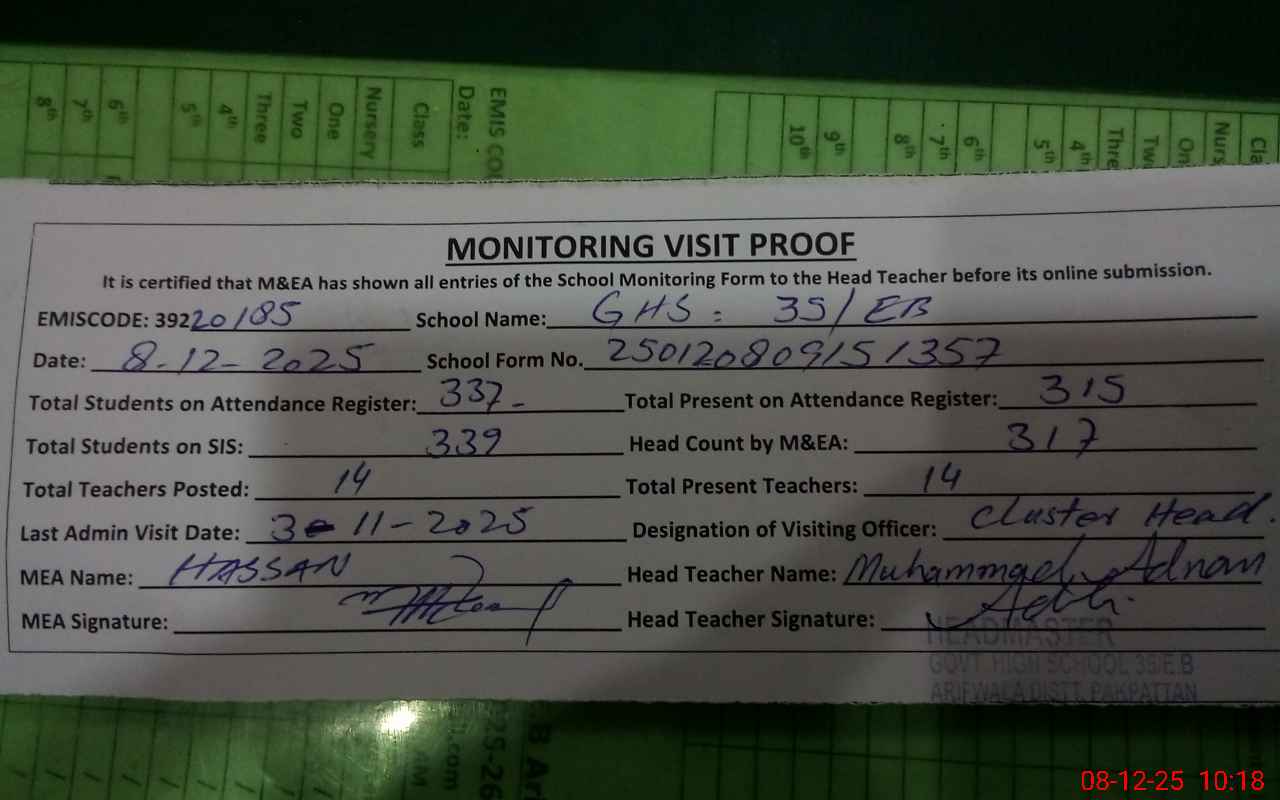 8th 7th 6th 5th 4th Three Two One Nursery Class
Date:
EMIS CO
10th 9th 8th 7th 6th 5th 4th Thre Two On Nurs Cla
MONITORING VISIT PROOF
It is certified that M&EA has shown all entries of the School Monitoring Form to the Head Teacher before its online submission.
EMISCODE: 39220185 School Name: GHS : 35/EB
Date: 8-12-2025 School Form No. 250120809151357
Total Students on Attendance Register: 337- Total Present on Attendance Register: 315
Total Students on SIS: 339 Head Count by M&EA: 317
Total Teachers Posted: 14 Total Present Teachers: 14
Last Admin Visit Date: 3-11-2025 Designation of Visiting Officer: Cluster Head.
MEA Name: HASSAN Head Teacher Name: Muhammad Adnan
MEA Signature: Head Teacher Signature:
HEADMASTER
GOVT. HIGH SCHOOL 35/E.B
ARIFWALA DISTT. PAKPATTAN
25-26
08-12-25 10:18